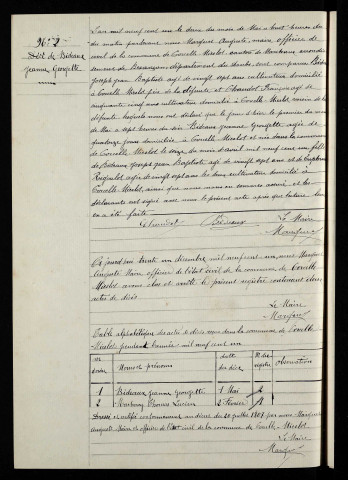 N° 2
Décès de Bideaux
Jeanne Georgette
L'an mil neuf cent un le deux du mois de Mai à huit heures du
du matin pardevant nous Marquis Auguste, maire, officier de
état civil de la commune de Corcelle Mieslot, canton de Marchaux, arrond
issement de Besançon, département du Doubs, sont comparus Bideaux
Joseph Jean Baptiste agé de vingt sept ans cultivateur domicilié
à Corcelle Mieslot, père de la défunte et Chaudot François agé de
cinquante cinq ans cultivateur domicilié à Corcelle Mieslot voisin de la
défunte, lesquels nous ont déclaré que le jour d'hier le premier du mois
de Mai à sept heures du soir Bideaux Jeanne Georgette agée de
domiciliée à Corcelle Mieslot et née dans la commune
de Corcelle Mieslot le seize du mois d'août mil neuf cent un fille
de Bideaux Joseph Jean Baptiste agé de vingt sept ans et de
agée de vingt sept ans les deux cultivateurs domiciliés à
Corcelle Mieslot, ainsi que nous nous en sommes assuré, et les
déclarants ont signé avec nous le présent acte après que lecture leur
en a été faite
Chaudot Bideaux Le Maire
Marquis
Ce jourd'hui trente un décembre mil neuf cent un, nous Marquis
Auguste Maire officier de l'état civil de la commune de Corcelle
Mieslot avons clos et arrêté le présent registre contenant deux
actes de décès.
Le Maire
Marquis
Table alphabétique des actes de décès reçus dans la commune de Corcelle
Mieslot pendant l'année mil neuf cent un
N° d'ordre Noms et prénoms date des décès N° des registres observations
1 Bideaux Jeanne Georgette 1 Mai 2
2 Lucien 2 Février 1
Dressé et certifié conformément au décret du 20 juillet 1807 par nous Marquis
Auguste Maire et officier de l'état civil de la commune de Corcelle Mieslot
Le Maire
Marquis